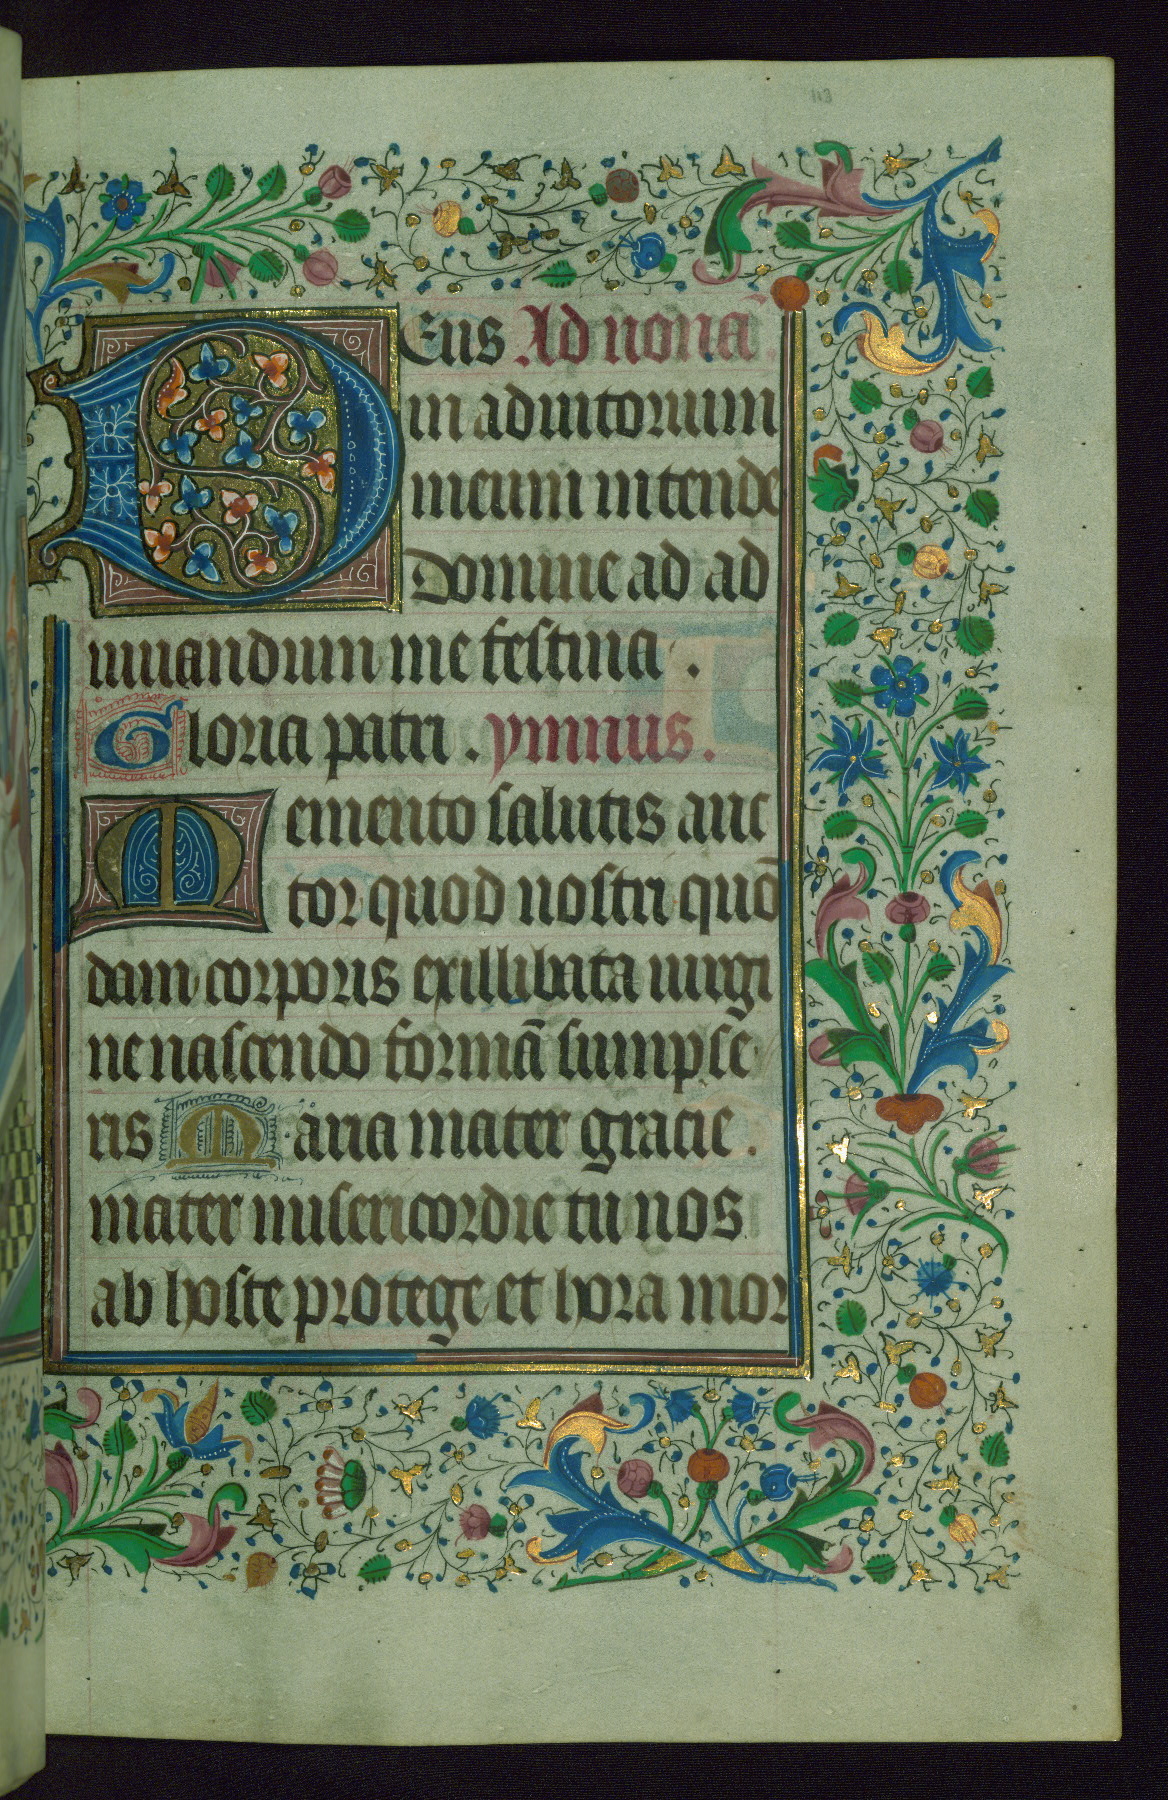 113
Deus Ad nonã.
in adiutorium
meum intende
Domine ad ad
iuuandum me festina .
Gloria patri . ymnus .
Memento salutis auc
tor quod nostri quõ
dam corporis exillibata uirgi
ne nascendo formã sumpse
ris Maria mater gracie .
mater misericordie tu nos
ab hoste protege et hora mor